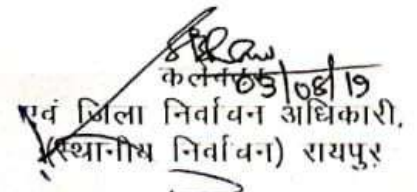 05/08/19
एवं जिला निर्वाचन अधिकारी,
(स्थानीय निर्वाचन) रायपुर